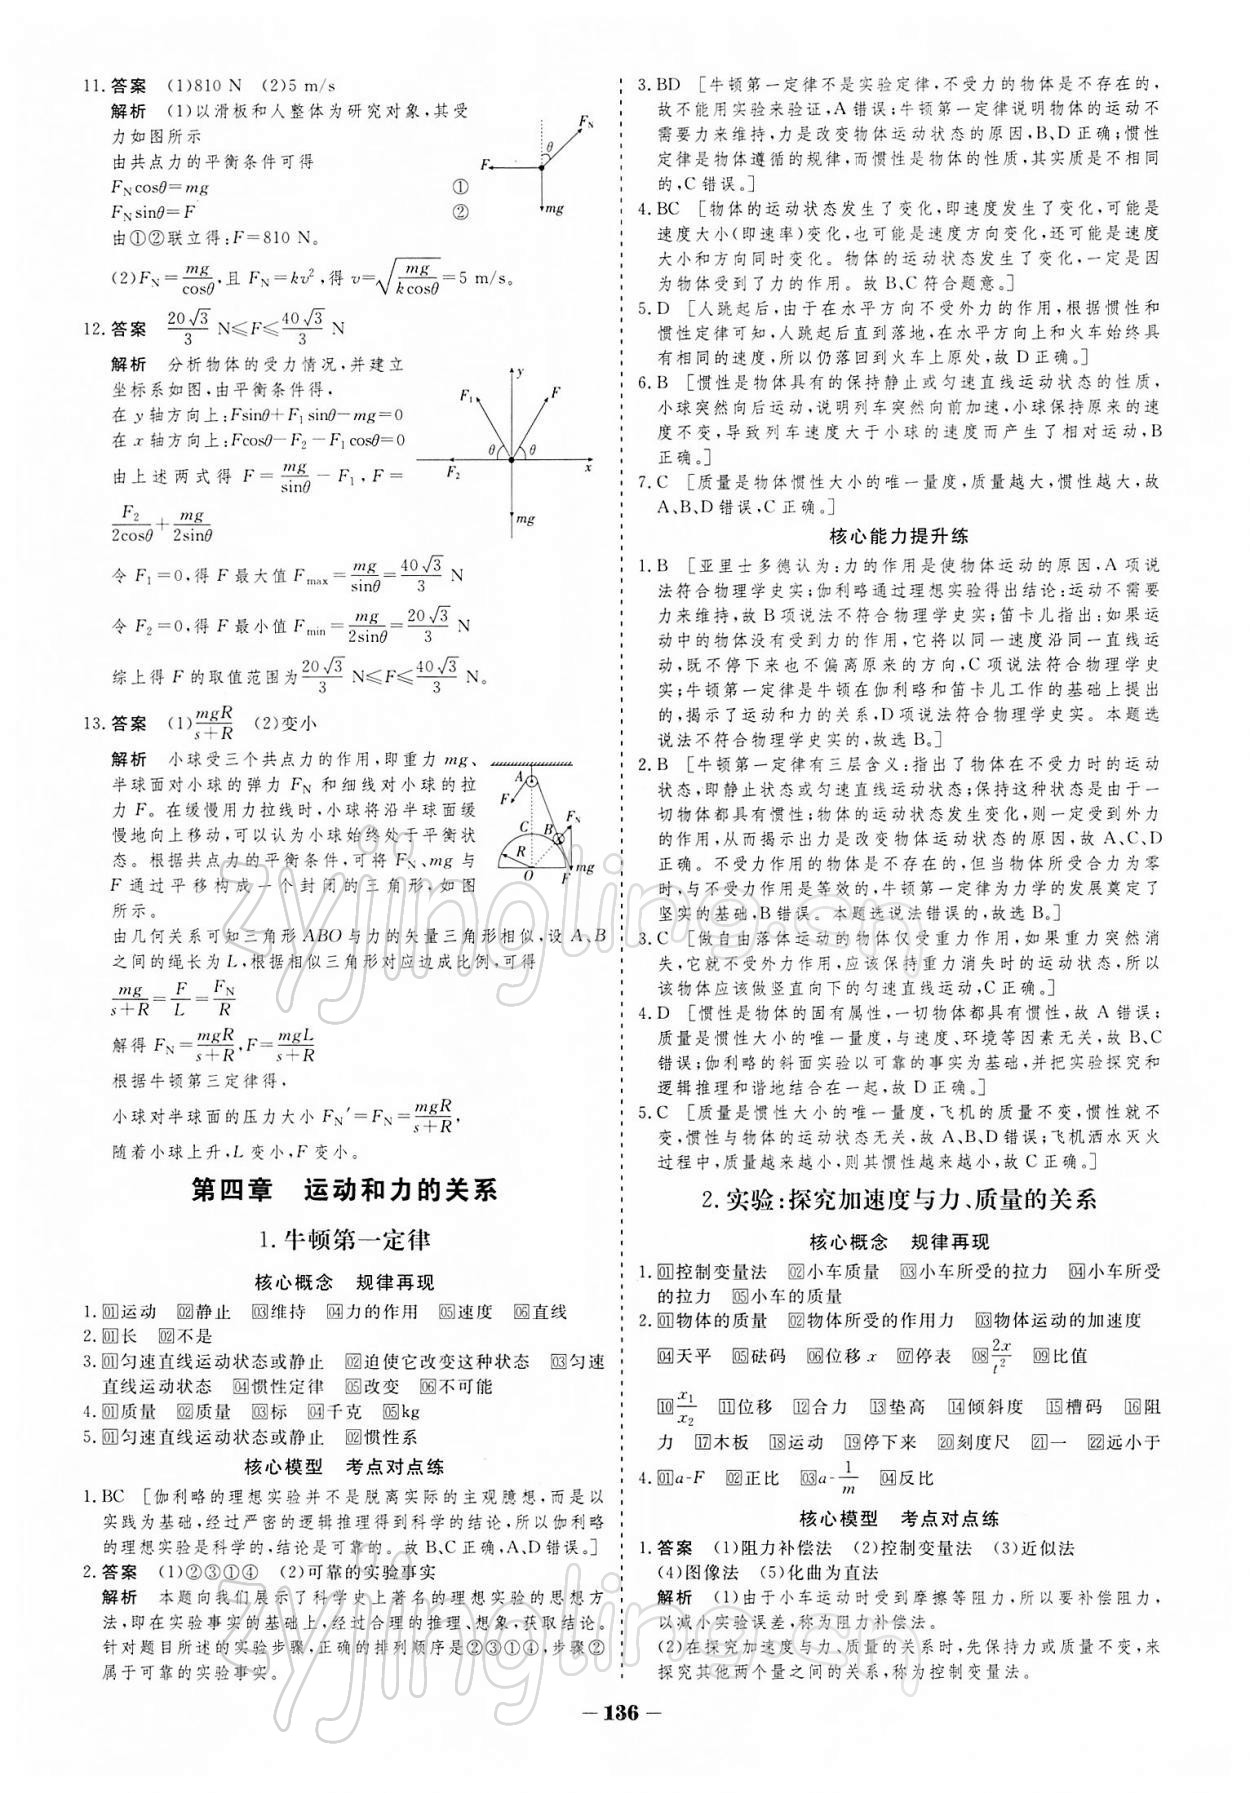 11. 答案 (1)810 N (2)5 m/s
解析 (1)以滑板和人整体为研究对象,其受
力如图所示
由共点力的平衡条件可得
F_N cosθ=mg ①
F_N sinθ=F ②
由①②联立得:F=810 N。
(2)F_N=mg/cosθ,且 F_N=kv²,得 v=√(mg/(k cosθ))=5 m/s。
F_N
θ
F
mg
12. 答案 20√3/3 N≤F≤40√3/3 N
解析 分析物体的受力情况,并建立
坐标系如图,由平衡条件得,
在 y 轴方向上:Fsinθ+F₁sinθ-mg=0
在 x 轴方向上:Fcosθ-F₂-F₁cosθ=0
由上述两式得 F=mg/sinθ-F₁,F=
F₂/2cosθ+mg/2sinθ
令 F₁=0,得 F 最大值 F_max=mg/sinθ=40√3/3 N
令 F₂=0,得 F 最小值 F_min=mg/2sinθ=20√3/3 N
综上得 F 的取值范围为20√3/3 N≤F≤40√3/3 N。
y
F₁
F
θ
θ
F₂
x
mg
13. 答案 (1)mgR/(s+R) (2)变小
解析 小球受三个共点力的作用,即重力 mg、
半球面对小球的弹力 F_N 和细线对小球的拉
力 F。在缓慢用力拉线时,小球将沿半球面缓
慢地向上移动,可以认为小球始终处于平衡状
态。根据共点力的平衡条件,可将 F_N、mg 与
F 通过平移构成一个封闭的三角形,如图
所示。
由几何关系可知三角形 ABO 与力的矢量三角形相似,设 A、B
之间的绳长为 L,根据相似三角形对应边成比例,可得
mg/(s+R)=F/L=F_N/R
解得 F_N=mgR/(s+R),F=mgL/(s+R)
根据牛顿第三定律得,
小球对半球面的压力大小 F_N′=F_N=mgR/(s+R),
随着小球上升,L 变小,F 变小。
A
F
F_N
C
B
R
mg
O
F
第四章 运动和力的关系
1. 牛顿第一定律
核心概念 规律再现
1. 01运动 02静止 03维持 04力的作用 05速度 06直线
2. 01长 02不是
3. 01匀速直线运动状态或静止 02迫使它改变这种状态 03匀速
直线运动状态 04惯性定律 05改变 06不可能
4. 01质量 02质量 03标 04千克 05kg
5. 01匀速直线运动状态或静止 02惯性系
核心模型 考点对点练
1. BC [伽利略的理想实验并不是脱离实际的主观臆想,而是以
实践为基础,经过严密的逻辑推理得到科学的结论,所以伽利略
的理想实验是科学的,结论是可靠的。故B、C正确,A、D错误。]
2. 答案 (1)②③①④ (2)可靠的实验事实
解析 本题向我们展示了科学史上著名的理想实验的思想方
法,即在实验事实的基础上,经过合理的推理、想象,获取结论。
针对题目所述的实验步骤,正确的排列顺序是②③①④,步骤②
属于可靠的实验事实。
3. BD [牛顿第一定律不是实验定律,不受力的物体是不存在的,
故不能用实验来验证,A错误;牛顿第一定律说明物体的运动不
需要力来维持,力是改变物体运动状态的原因,B、D正确;惯性
定律是物体遵循的规律,而惯性是物体的性质,其实质是不相同
的,C错误。]
4. BC [物体的运动状态发生了变化,即速度发生了变化,可能是
速度大小(即速率)变化,也可能是速度方向变化,还可能是速度
大小和方向同时变化。物体的运动状态发生了变化,一定是因
为物体受到了力的作用。故B、C符合题意。]
5. D [人跳起后,由于在水平方向不受外力的作用,根据惯性和
惯性定律可知,人跳起后直到落地,在水平方向上和火车始终具
有相同的速度,所以仍落回到火车上原处,故D正确。]
6. B [惯性是物体具有的保持静止或匀速直线运动状态的性质,
小球突然向后运动,说明列车突然向前加速,小球保持原来的速
度不变,导致列车速度大于小球的速度而产生了相对运动,B
正确。]
7. C [质量是物体惯性大小的唯一量度,质量越大,惯性越大,故
A、B、D错误,C正确。]
核心能力提升练
1. B [亚里士多德认为:力的作用是使物体运动的原因,A项说
法符合物理学史实;伽利略通过理想实验得出结论:运动不需要
力来维持,故B项说法不符合物理学史实;笛卡儿指出:如果运
动中的物体没有受到力的作用,它将以同一速度沿同一直线运
动,既不停下来也不偏离原来的方向,C项说法符合物理学史
实;牛顿第一定律是牛顿在伽利略和笛卡儿工作的基础上提出
的,揭示了运动和力的关系,D项说法符合物理学史实。本题选
说法不符合物理学史实的,故选B。]
2. B [牛顿第一定律有三层含义:指出了物体在不受力时的运动
状态,即静止状态或匀速直线运动状态;保持这种状态是由于一
切物体都具有惯性;物体的运动状态发生改变,则一定受到外力
的作用,从而揭示出力是改变物体运动状态的原因,故A、C、D
正确。不受力作用的物体是不存在的,但当物体所受合力为零
时,与不受力作用是等效的,牛顿第一定律为力学的发展奠定了
坚实的基础,B错误。本题选说法错误的,故选B。]
3. C [做自由落体运动的物体仅受重力作用,如果重力突然消
失,它就不受外力作用,应该保持重力消失时的运动状态,所以
该物体应该做竖直向下的匀速直线运动,C正确。]
4. D [惯性是物体的固有属性,一切物体都具有惯性,故A错误;
质量是惯性大小的唯一量度,与速度、环境等因素无关,故B、C
错误;伽利略的斜面实验以可靠的事实为基础,并把实验探究和
逻辑推理和谐地结合在一起,故D正确。]
5. C [质量是惯性大小的唯一量度,飞机的质量不变,惯性就不
变,惯性与物体的运动状态无关,故A、B、D错误;飞机洒水灭火
过程中,质量越来越小,则其惯性越来越小,故C正确。]
2. 实验:探究加速度与力、质量的关系
核心概念 规律再现
1. 01控制变量法 02小车质量 03小车所受的拉力 04小车所受
的拉力 05小车的质量
2. 01物体的质量 02物体所受的作用力 03物体运动的加速度
04天平 05砝码 06位移x 07停表 08 2x/t² 09比值
10 x₁/x₂ 11位移 12合力 13垫高 14倾斜度 15槽码 16阻
力 17木板 18运动 19停下来 20刻度尺 21一 22远小于
4. 01a-F 02正比 03a-1/m 04反比
核心模型 考点对点练
1. 答案 (1)阻力补偿法 (2)控制变量法 (3)近似法
(4)图像法 (5)化曲为直法
解析 (1)由于小车运动时受到摩擦等阻力,所以要补偿阻力,
以减小实验误差,称为阻力补偿法。
(2)在探究加速度与力、质量的关系时,先保持力或质量不变,来
探究其他两个量之间的关系,称为控制变量法。
zyjingling.cn
zyjingling.cn
- 136 -